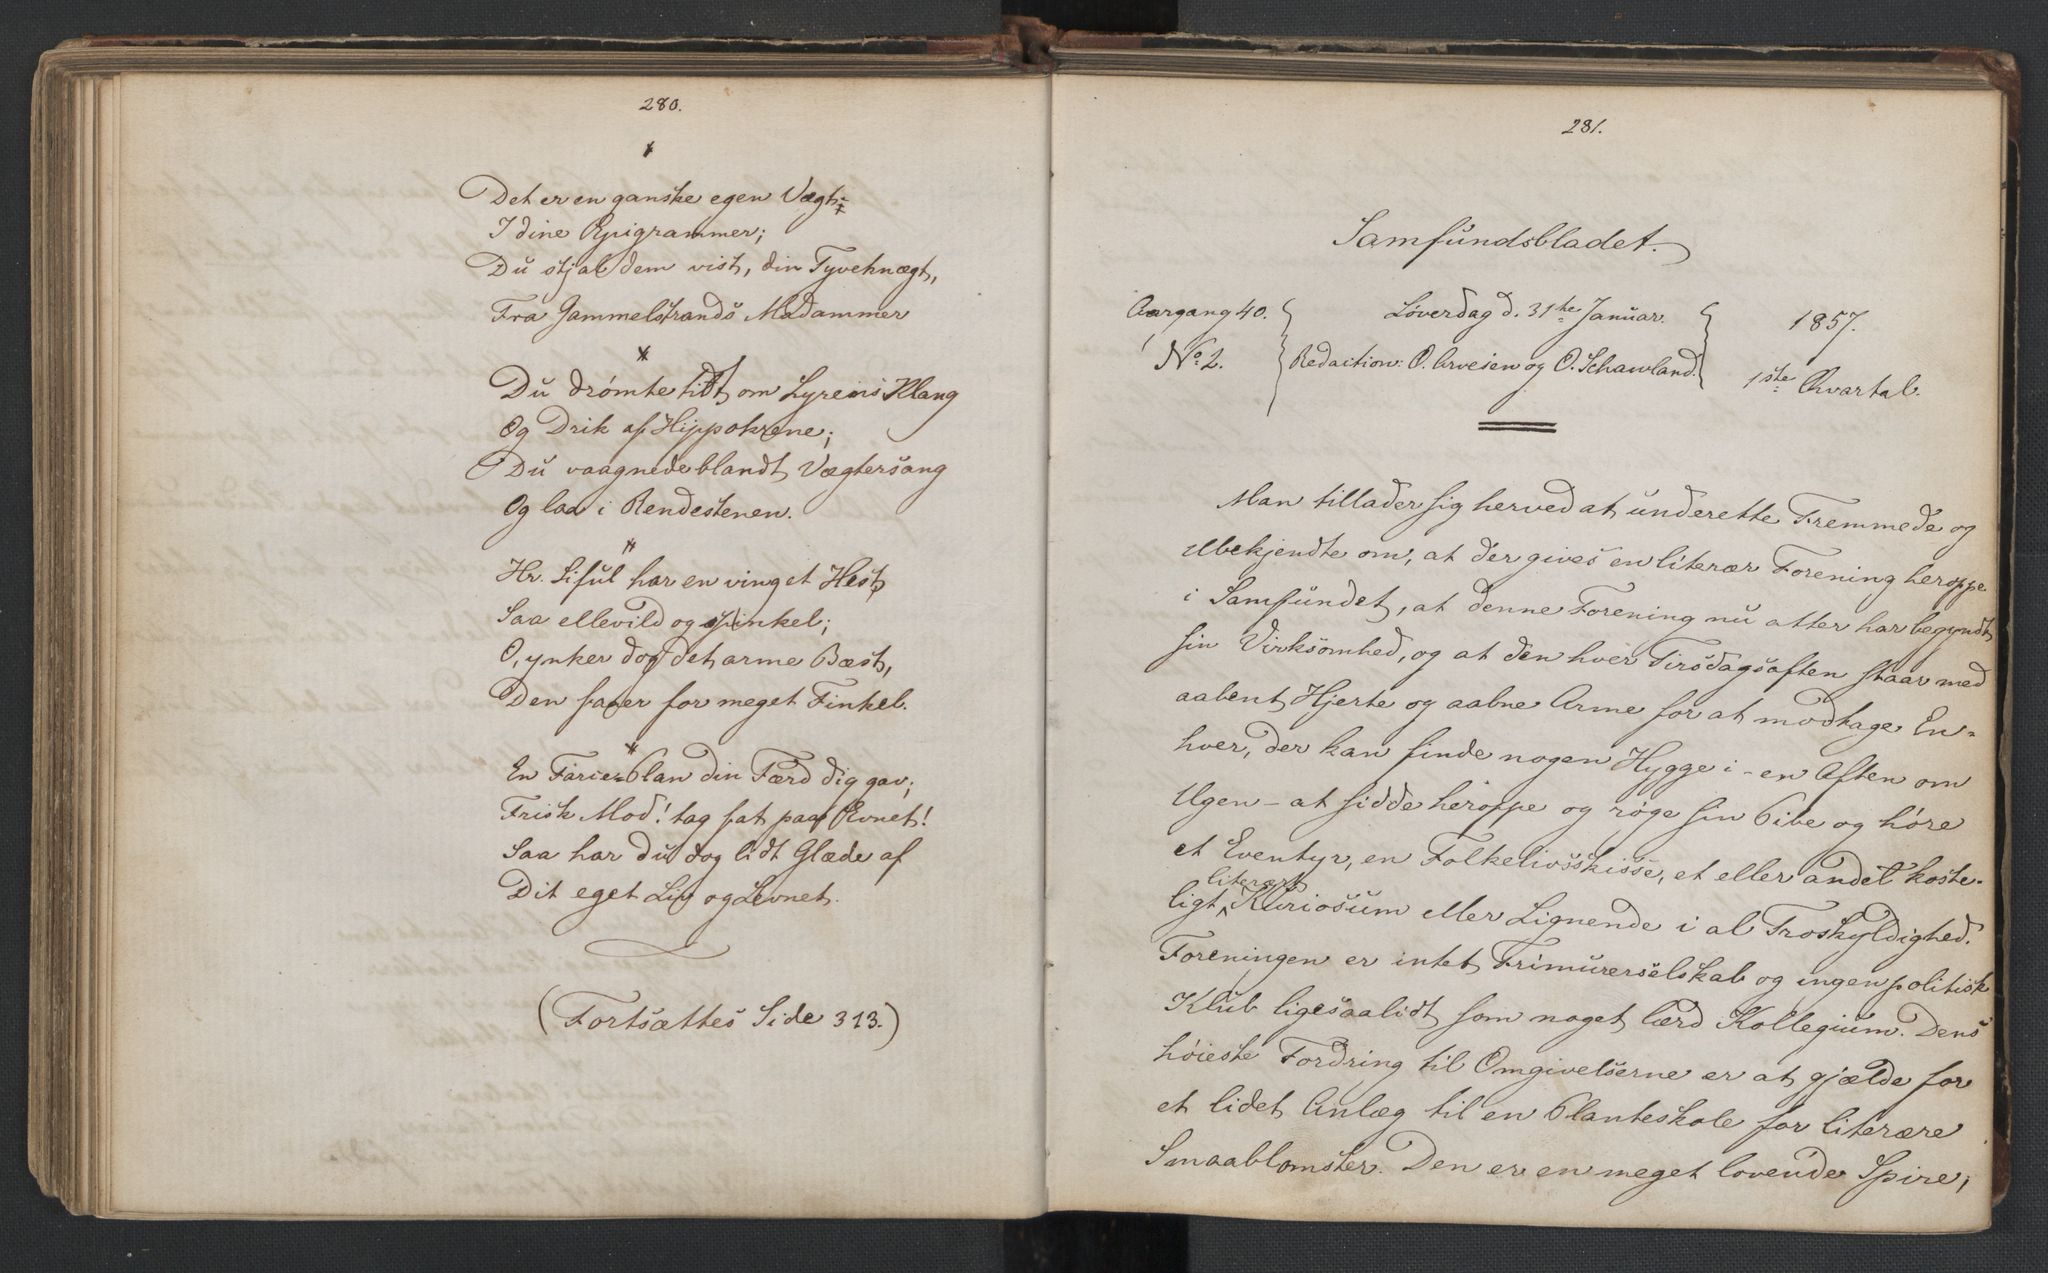 280.
*
Det er en ganske egen Vægt
I dine Epigrammer;
Du stjal dem vist, din Tyveknægt,
Fra Gammelstrands Madammer
*
Du drömte tidt om Lyrens Klang
Og Drik af Hippokrene;
Du vaagnede blandt Vægtersang
Og laa i Rendestenen.
*
Hr. Siful har en vinget Hest,
Saa ellevild og sjinkel;
O, ynker dog det arme Bæst,
Den faaer for meget Finkel.
*
En Farce-Plan din Færd dig gav;
Frisk Mod! tag fat paa Evnet!
Saa har du dog lidt Glæde af
Dit eget Liv og Levnet.
(Fortsættes Side 313.)
281.
Samfundsbladet.
Aargang 40. Löverdag d. 31te Januar. 1857.
No 2. Redaction: O. Arvesen og O. Schavland. 1ste Qvartal.
Man tillader sig herved at underette Fremmede og
Ubekjendte om, at der gives en literær Forening heroppe
i Samfundet, at denne Forening nu atter har begyndt
sin Virksomhed, og at den hver Tirsdagsaften staar med
aabent Hjerte og aabne Arme for at modtage En-
hver, der kan finde nogen Hygge i - en Aften om
Ugen - at sidde heroppe og röge sin Pibe og höre
et Eventyr, en Folkelivsskisse, et eller andet koste-
ligt literært Kuriosum eller Lignende i al Troskyldighed.
Foreningen er intet Frimurerselskab og ingen politisk
Klub ligesaalidt som noget lærd Kollegium. Dens
höieste Fordring til Omgivelserne er at gjælde for
et lidet Anlæg til en Planteskole for literære
Smaablomster. Den er en meget lovende Spire,